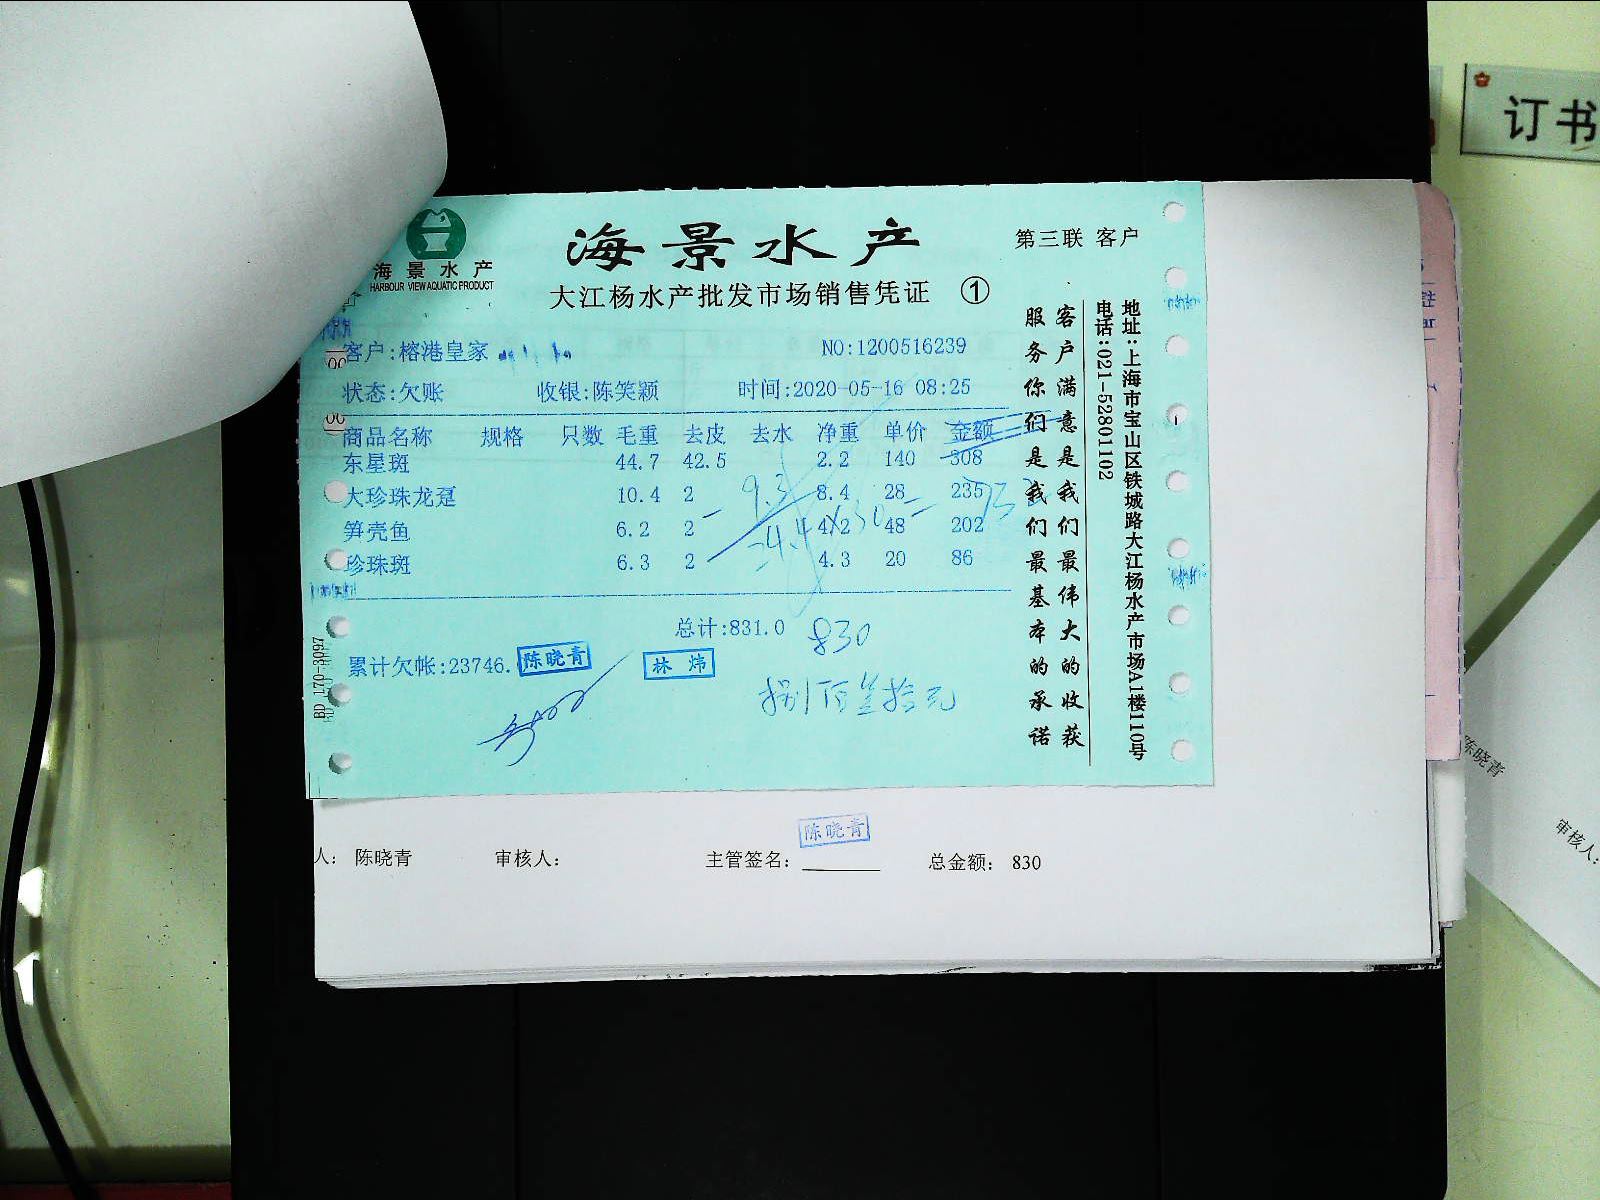 订书
海景水产
HARBOUR VIEW AQUATIC PRODUCT
海景水产
第三联 客户
大江杨水产批发市场销售凭证 ①
客户:榕港皇家
NO:1200516239
状态:欠账 收银:陈笑颖 时间:2020-05-16 08:25
商品名称 规格 只数 毛重 去皮 去水 净重 单价 金额
东星斑 44.7 42.5 2.2 140 308
大珍珠龙趸 10.4 2 8.4 28 235
笋壳鱼 6.2 2 4.2 48 202
珍珠斑 6.3 2 4.3 20 86
9.3
总计:831.0 830
累计欠帐:23746.
陈晓青
林炜
捌佰叁拾元
客户满意是我们最伟大的收获
服务你们是我们最基本的承诺
地址:上海市宝山区铁城路大江杨水产市场A1楼110号
电话:021-52801102
BD 170-3097
陈晓青
人: 陈晓青 审核人: 主管签名: 总金额: 830
陈晓青
审核人: